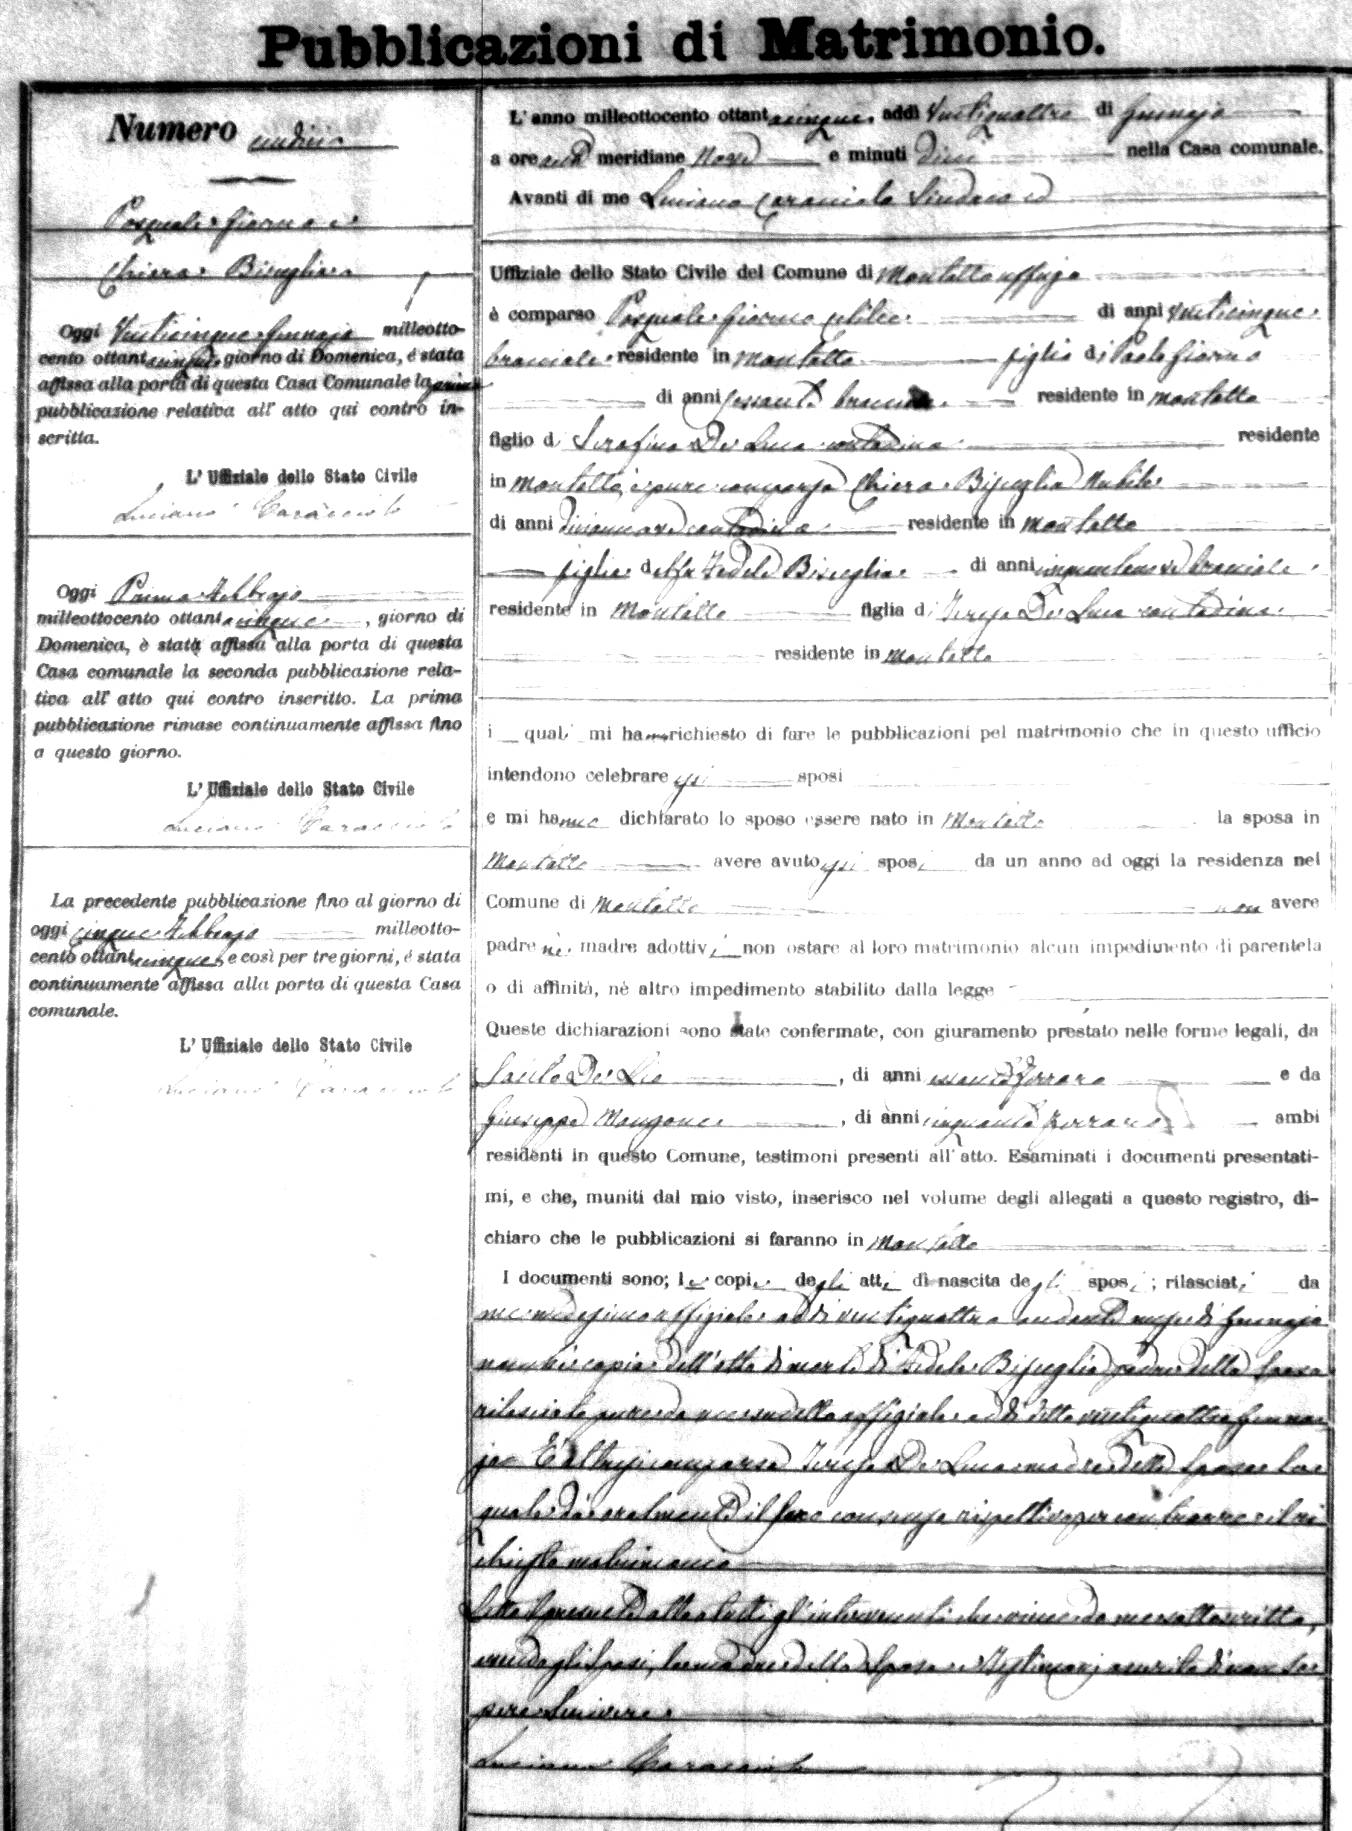 Pubblicazioni di Matrimonio.
Numero undici
Pasquale Giorno e
Chiara Bisuglia
Oggi Venticinque Gennajo milleotto-
cento ottantacinque, giorno di Domenica, è stata
affissa alla porta di questa Casa Comunale la prima
pubblicazione relativa all' atto qui contro in-
scritta.
L' Uffiziale dello Stato Civile
Luciano Caracciolo
Oggi Primo Febbrajo
milleottocento ottantacinque, giorno di
Domenica, è stata affissa alla porta di questa
Casa comunale la seconda pubblicazione rela-
tiva all' atto qui contro inscritto. La prima
pubblicazione rimase continuamente affissa fino
a questo giorno.
L' Uffiziale dello Stato Civile
Luciano Caracciolo
La precedente pubblicazione fino al giorno di
oggi cinque Febbrajo milleotto-
cento ottantacinque, e così per tre giorni, é stata
continuamente affissa alla porta di questa Casa
comunale.
L' Uffiziale dello Stato Civile
Luciano Caracciolo
L' anno milleottocento ottantacinque, addì Ventiquattro di Gennajo
a ore anti meridiane Nove e minuti dieci nella Casa comunale.
Avanti di me Luciano Caracciolo Sindaco ed
Uffiziale dello Stato Civile del Comune di Montalto uffugo
è comparso Pasquale Giorno celibe di anni Venticinque
bracciale residente in Montalto figlio di Paolo Giorno
di anni sessanta bracciale residente in Montalto
figlio di Serafina De Luca contadina residente
in Montalto, è pure comparsa Chiara Bisuglia Nubile
di anni diciannove contadina residente in Montalto
figlia del fu Fedele Bisceglia di anni cinquantanove bracciale
residente in Montalto figlia di Teresa De Luca contadina
residente in Montalto
i quali mi hanno richiesto di fare le pubblicazioni pel matrimonio che in questo ufficio
intendono celebrare essi sposi
e mi hanno dichiarato lo sposo essere nato in Montalto la sposa in
Montalto avere avuto essi sposi da un anno ad oggi la residenza nel
Comune di Montalto non avere
padre nè madre adottivi non ostare al loro matrimonio alcun impedimento di parentela
o di affinità, nè altro impedimento stabilito dalla legge
Queste dichiarazioni sono state confermate, con giuramento prestato nelle forme legali, da
Santo De Leo, di anni sessanta ferraro e da
Giuseppe Mangone, di anni cinquanta ferraro ambi
residenti in questo Comune, testimoni presenti all' atto. Esaminati i documenti presentati-
mi, e che, muniti dal mio visto, inserisco nel volume degli allegati a questo registro, di-
chiaro che le pubblicazioni si faranno in Montalto
I documenti sono; le copie degli atti di nascita degli sposi; rilasciati da
me medesimo uffiziale addì ventiquattro andante mese di Gennajo
nonchè copia dell'atto di morte di Fedele Bisuglia padre della sposa
rilasciata pure da me suddetto uffiziale addì detto ventiquattro Genna-
jo. È altresì comparsa Teresa De Luca madre della sposa la
quale dà oralmente il suo consenso rispettivo per contrarre il ri-
chiesto matrimonio
Letto il presente atto a tutti gl'intervenuti che viene da me sottoscritto,
avendo gli sposi, la madre della sposa e testimonj asserito di non sa-
pere scrivere.
Luciano Caracciolo